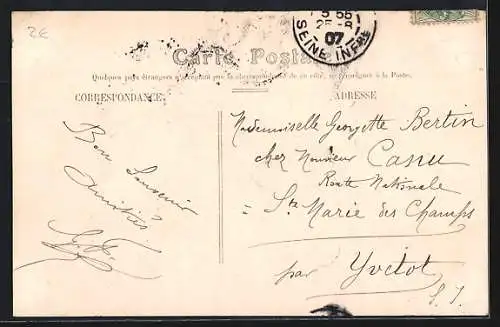 2E
5 55
25 - 8
07
SEINE INFRE
Carte Postale
Quelques pays étrangers n'acceptent pas la correspondance de ce côté, se renseigner à la Poste.
CORRESPONDANCE
ADRESSE
Bon Souvenir
Amitiés
Mademoiselle Georgette Bertin
chez Monsieur Canu
Route Nationale
= Ste Marie des Champs
par Yvetot
S. I.